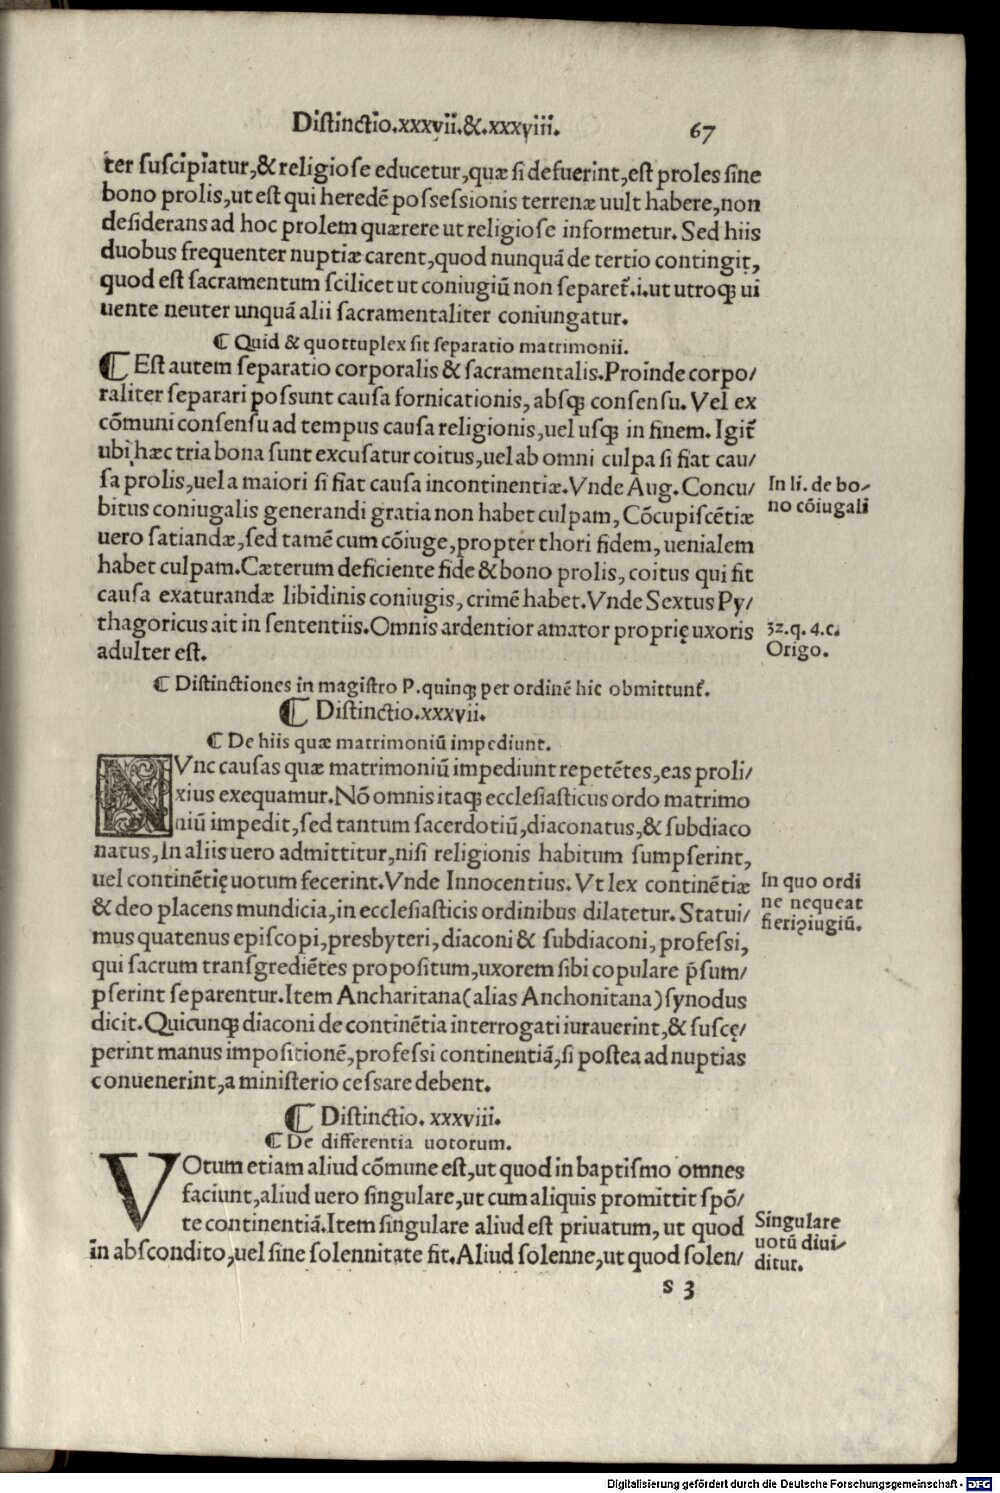 Distinctio.xxxvii.&.xxxviii. 67
ter suscipiatur,& religiose educetur,quæ si defuerint,est proles sine
bono prolis,ut est qui heredē possessionis terrenæ uult habere,non
desiderans ad hoc prolem quærere ut religiose informetur. Sed hiis
duobus frequenter nuptiæ carent,quod nunquā de tertio contingit,
quod est sacramentum scilicet ut coniugiū non separet᷑.i.ut utroq; ui
uente neuter unquā alii sacramentaliter coniungatur.
¶ Quid & quottuplex sit separatio matrimonii.
¶ Est autem separatio corporalis & sacramentalis.Proinde corpo/
raliter separari possunt causa fornicationis, absq; consensu. Vel ex
cōmuni consensu ad tempus causa religionis,uel usq; in finem. Igit᷑
ubi hæc tria bona sunt excusatur coitus,uel ab omni culpa si fiat cau/
sa prolis,uel a maiori si fiat causa incontinentiæ.Vnde Aug. Concu/
bitus coniugalis generandi gratia non habet culpam, Cōcupiscētiæ
uero satiandæ,sed tamē cum cōiuge,propter thori fidem, uenialem
habet culpam.Cæterum deficiente fide & bono prolis, coitus qui fit
causa exaturandæ libidinis coniugis, crimē habet.Vnde Sextus Py/
thagoricus ait in sententiis.Omnis ardentior amator proprię uxoris
adulter est.
In li. de bo/
no cōiugali
32.q. 4.c.
Origo.
¶ Distinctiones in magistro P.quinq; per ordinē hic obmittunt᷑.
¶ Distinctio.xxxvii.
¶ De hiis quæ matrimoniū impediunt.
NVnc causas quæ matrimoniū impediunt repetētes,eas proli/
xius exequamur.Nō omnis itaq; ecclesiasticus ordo matrimo
niū impedit,sed tantum sacerdotiū,diaconatus,& subdiaco
natus,In aliis uero admittitur,nisi religionis habitum sumpserint,
uel continētię uotum fecerint.Vnde Innocentius. Vt lex continētiæ
& deo placens mundicia,in ecclesiasticis ordinibus dilatetur. Statui/
mus quatenus episcopi,presbyteri,diaconi & subdiaconi, professi,
qui sacrum transgrediētes propositum,uxorem sibi copulare p̄sum/
pserint separentur.Item Ancharitana(alias Anchonitana)synodus
dicit.Quicunq; diaconi de continētia interrogati iurauerint,& suscę/
perint manus impositionē,professi continentiā,si postea ad nuptias
conuenerint,a ministerio cessare debent.
In quo ordi
ne nequeat
fieri ꝯiugiū.
¶ Distinctio. xxxviii.
¶ De differentia uotorum.
VOtum etiam aliud cōmune est,ut quod in baptismo omnes
faciunt,aliud uero singulare,ut cum aliquis promittit spō/
te continentiā.Item singulare aliud est priuatum, ut quod
in abscondito,uel sine solennitate fit.Aliud solenne,ut quod solen/
Singulare
uotū diui/
ditur.
s 3
Digitalisierung gefördert durch die Deutsche Forschungsgemeinschaft - DFG